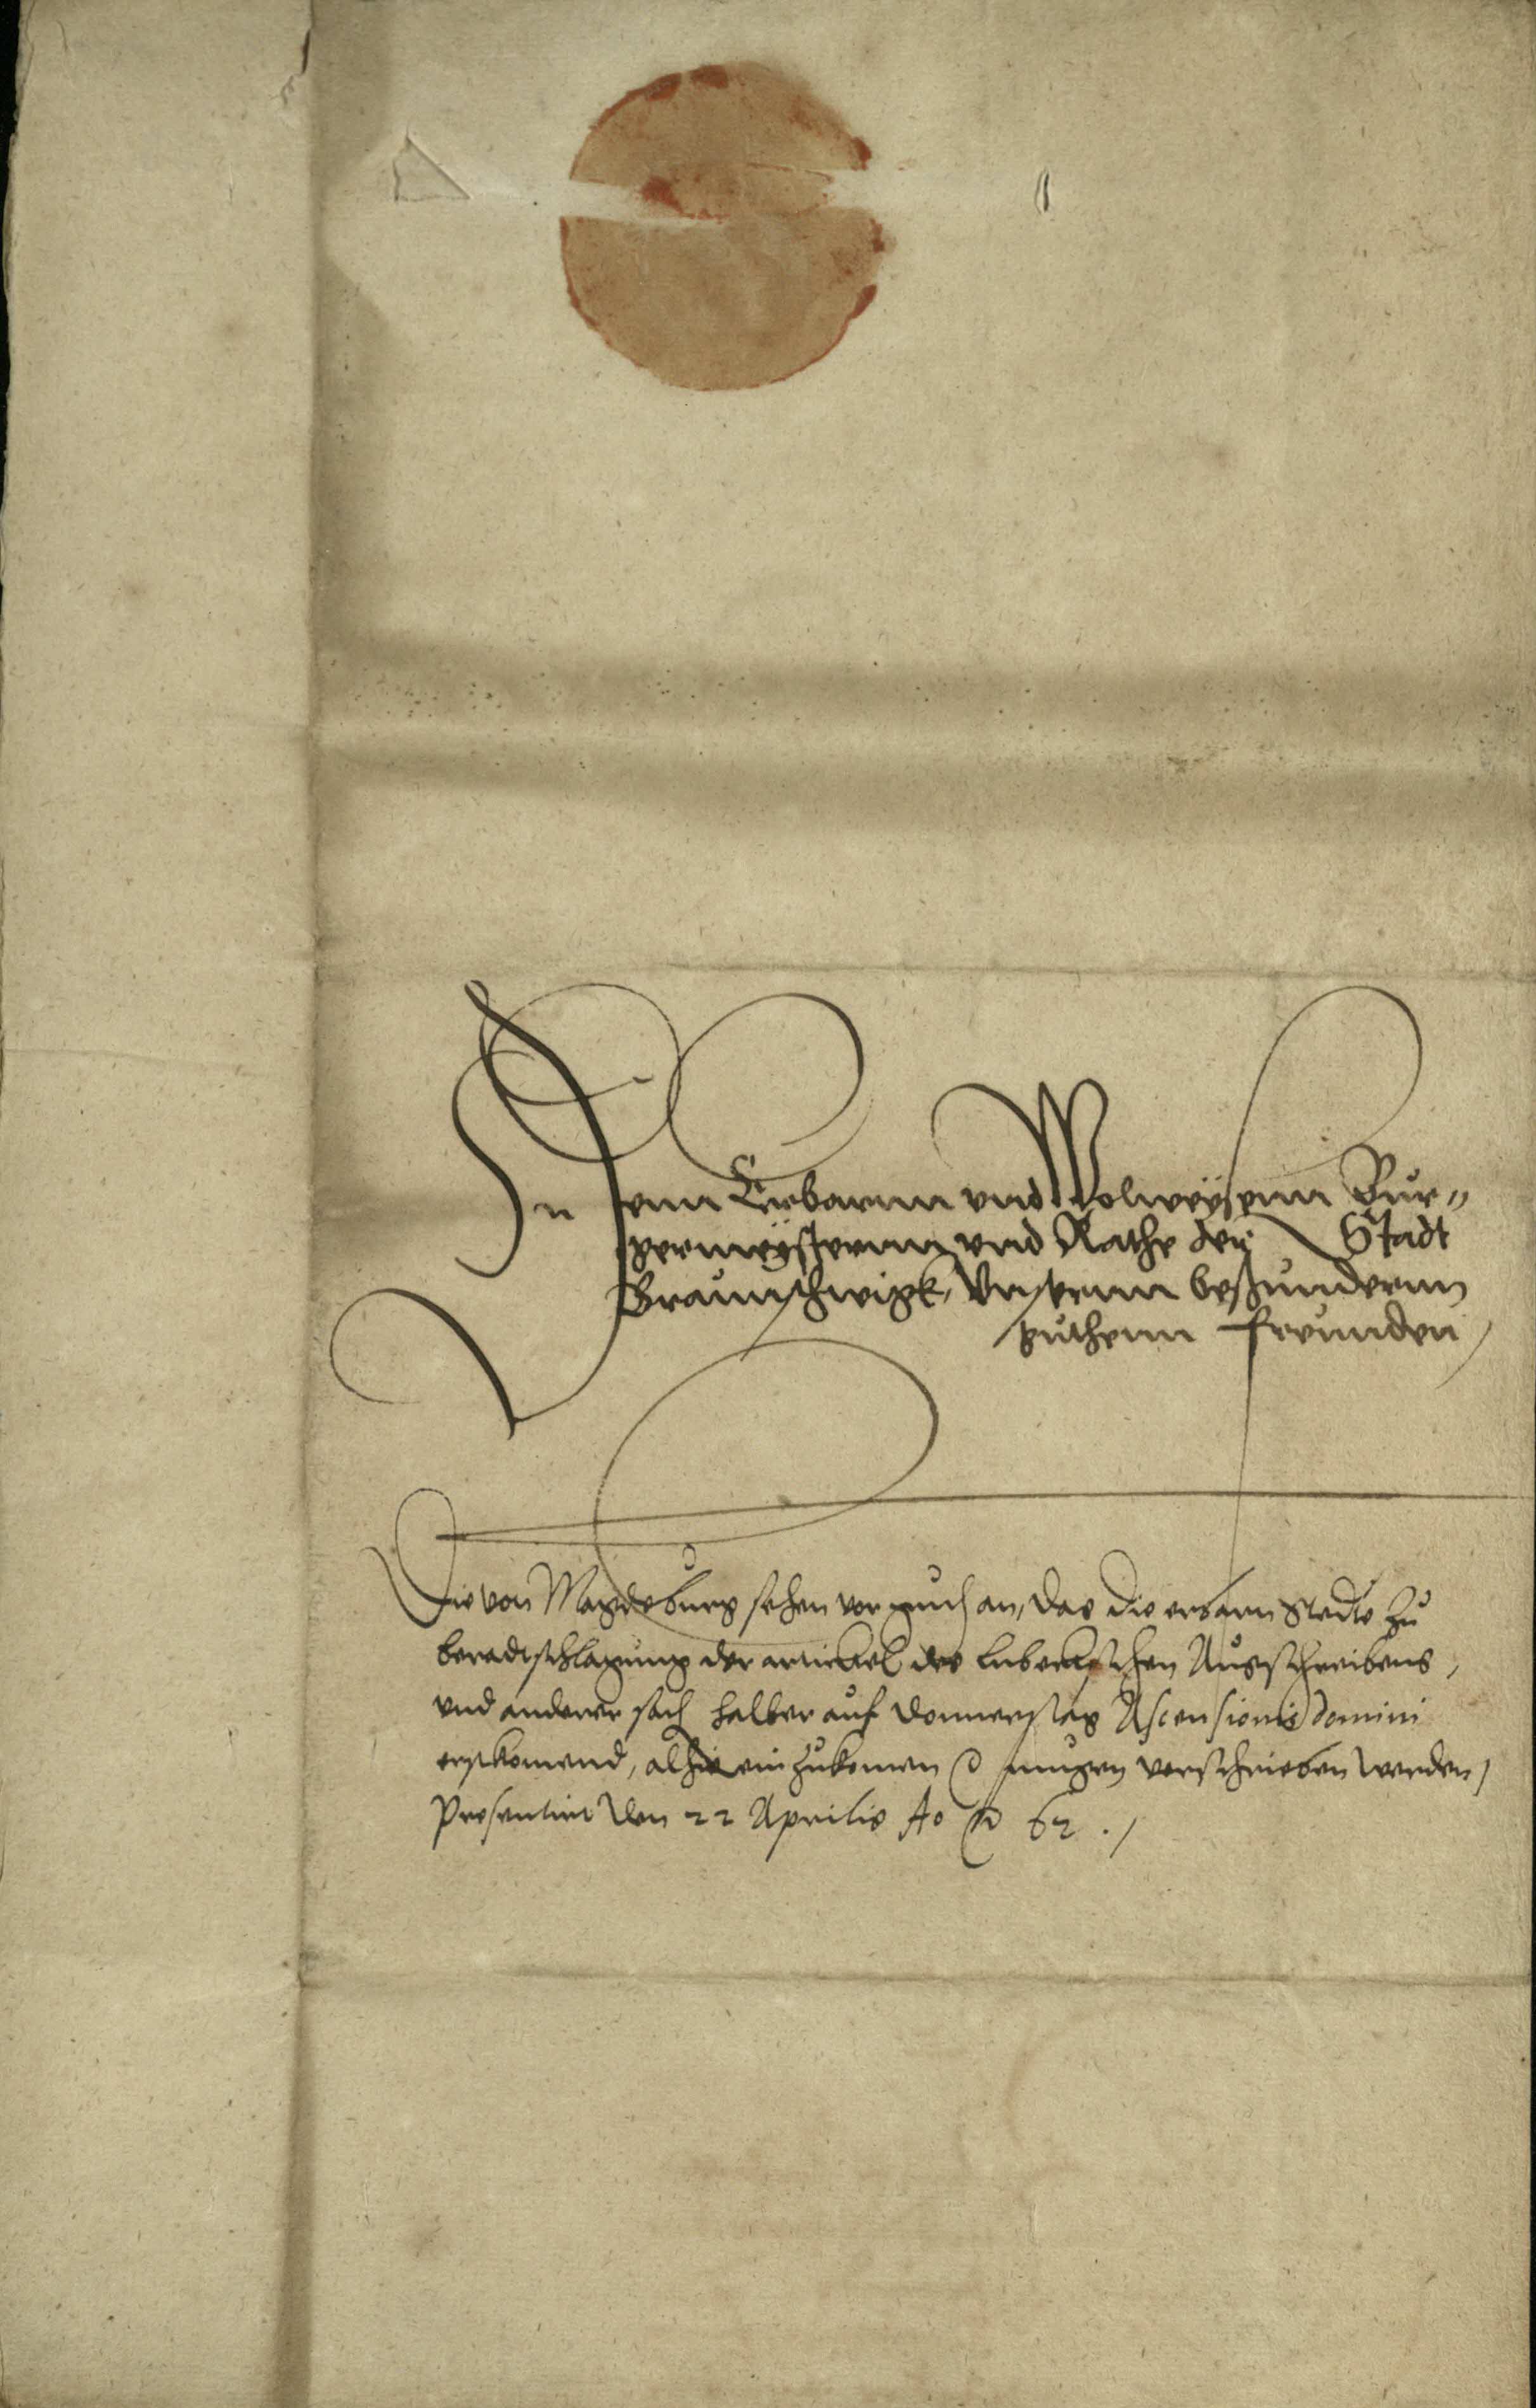 Den Erbarnn vnd Wolweysenn Bur„
germeysternn vnd Rathe der Stadt
Braunschwigk, Vnsernn beßundernn
guthenn freunden
Die von Magdeburg sehen vor guth an, das die erbarn Stedte zu
beradtschlagung der artickel des lubeckischen Ausschreibens,
vnd anderer sach halber auf Donnerstag Ascensionis domini
erstkomend, alhie einzukomen mugen verschrieben werden,
Presentirt den 22 Aprilis Ao 62 ./